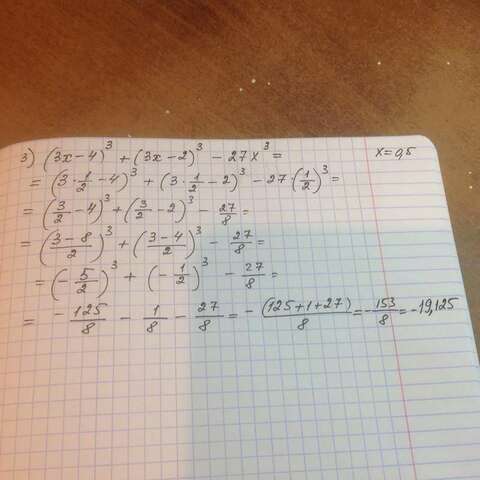 3) (3x-4)³ + (3x-2)³ - 27x³ = x=0,5
= (3·1/2-4)³ + (3·1/2-2)³ - 27·(1/2)³ =
= (3/2-4)³ + (3/2-2)³ - 27/8 =
= ((3-8)/2)³ + ((3-4)/2)³ - 27/8 =
= (-5/2)³ + (-1/2)³ - 27/8 =
= -125/8 - 1/8 - 27/8 = -(125+1+27)/8 = -153/8 = -19,125